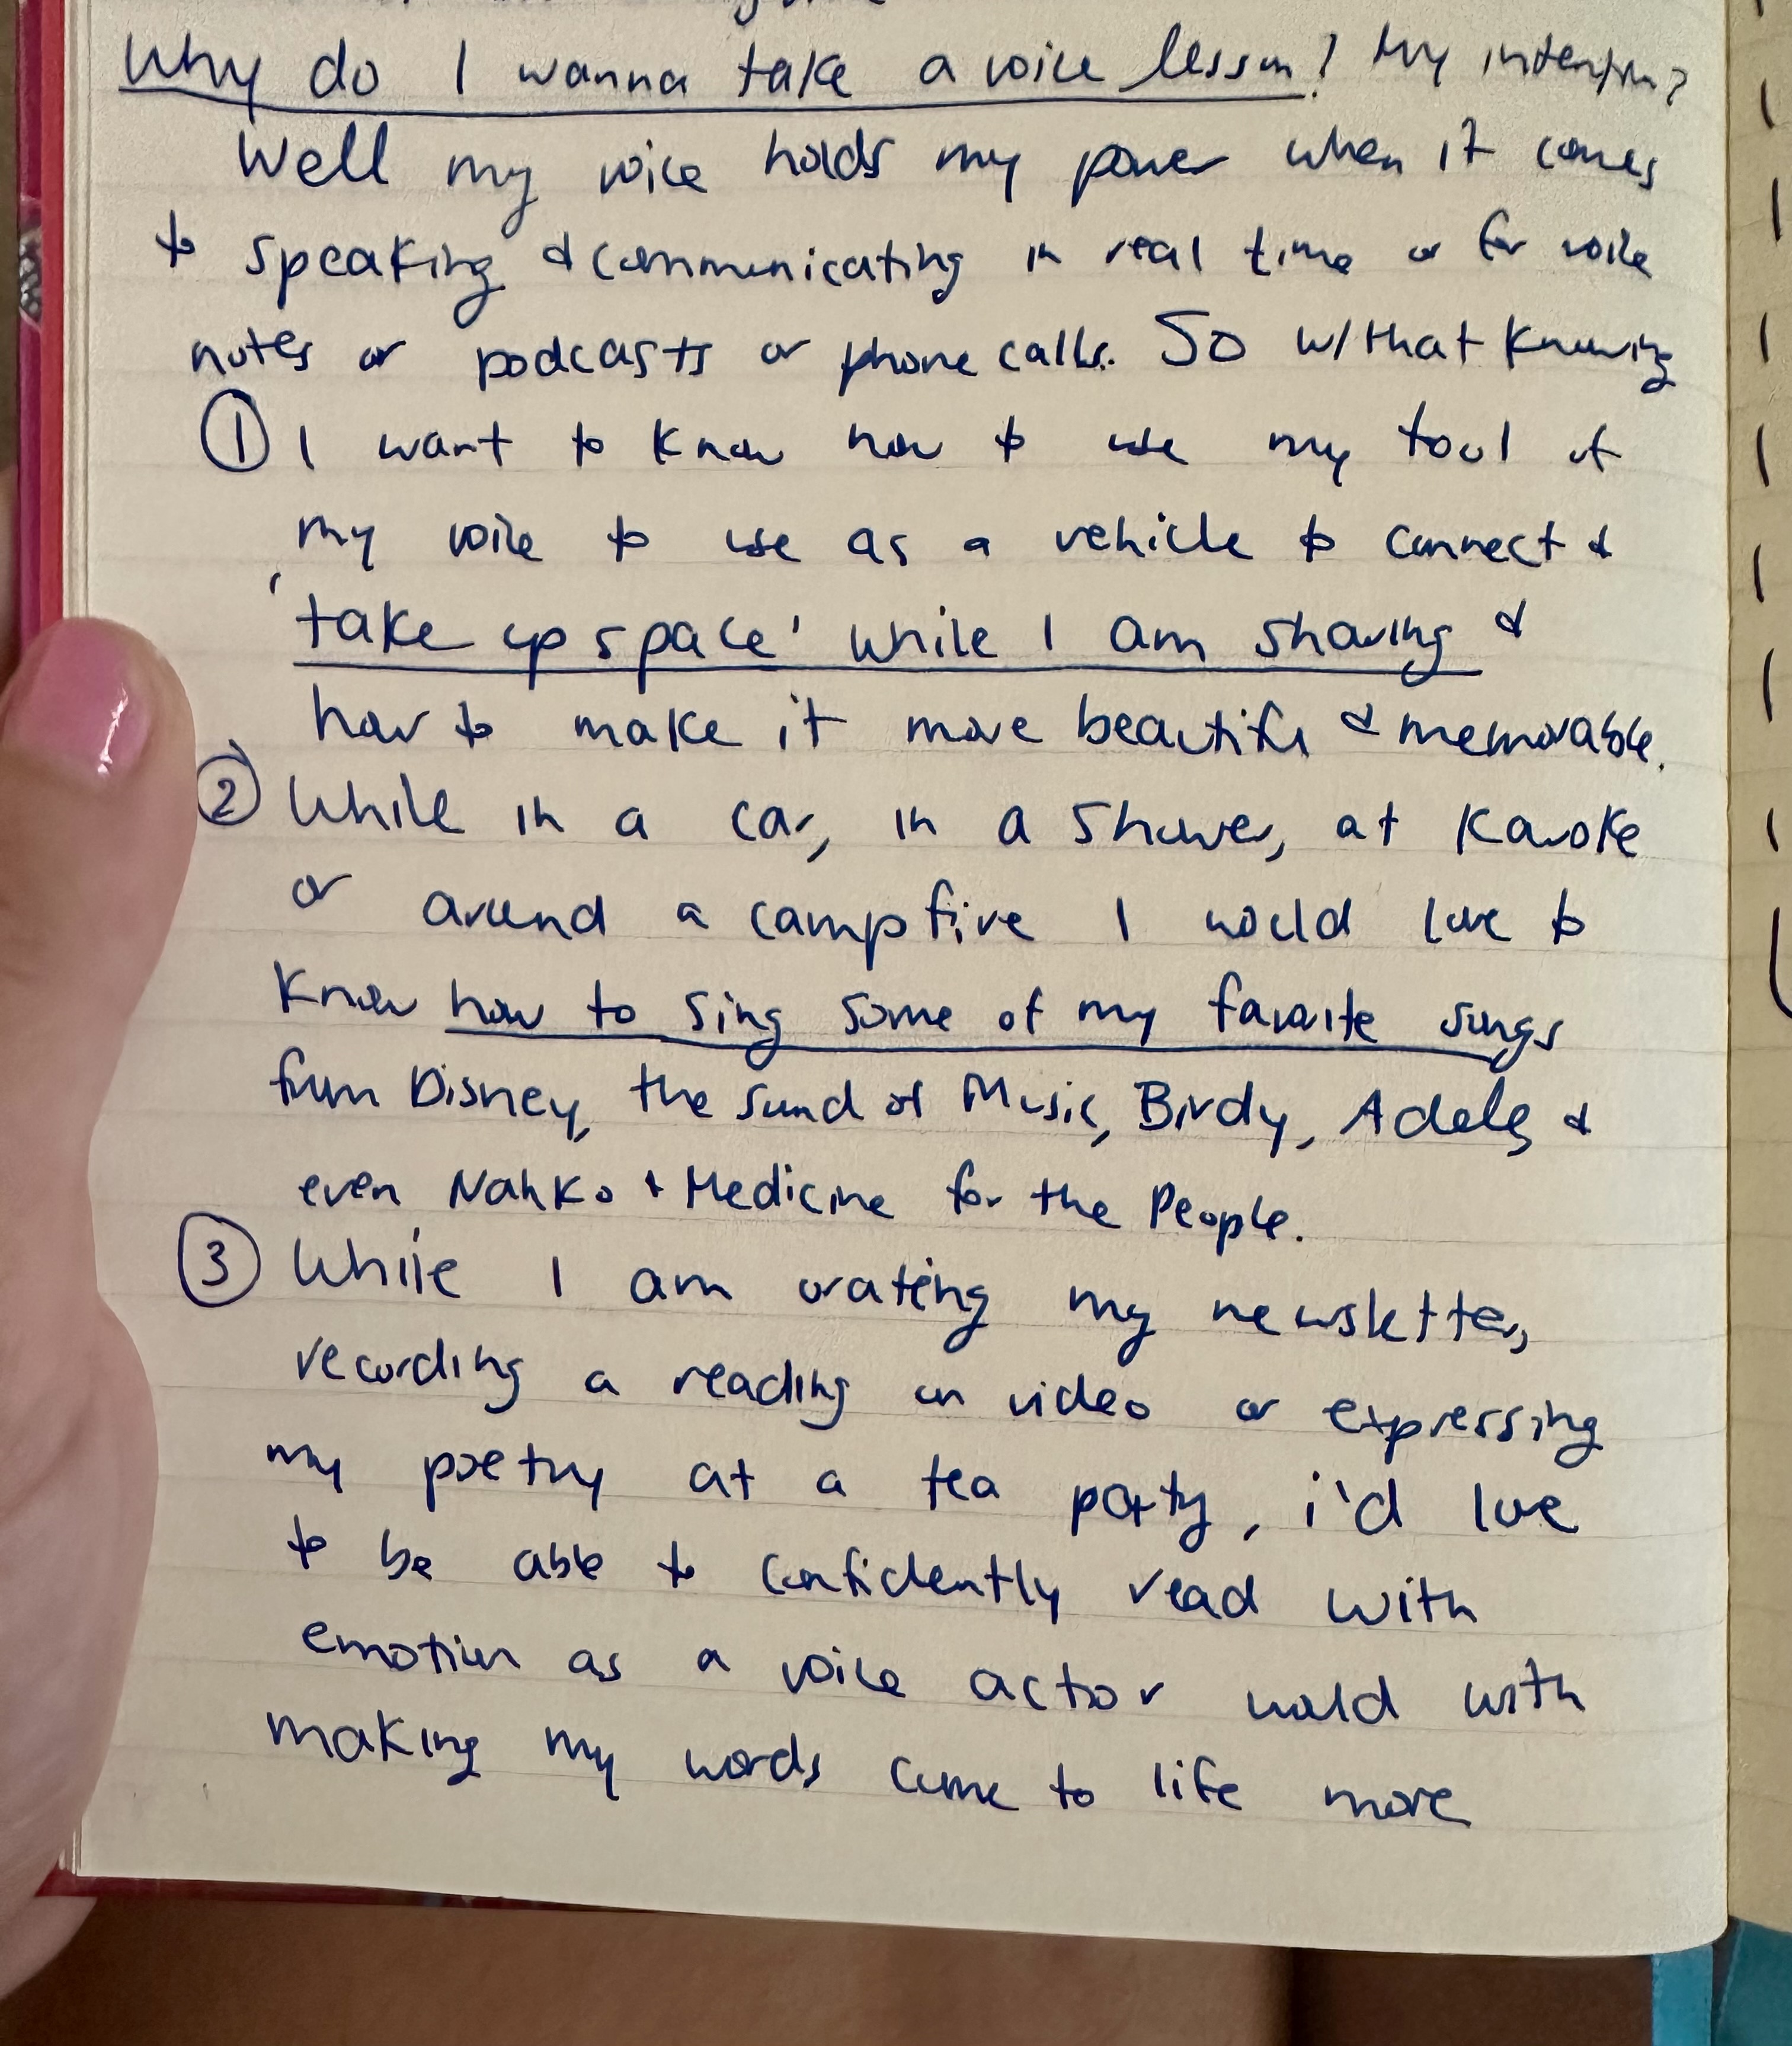 Why do I wanna take a voice lesson? My intention?
Well my voice holds my power when it comes
to speaking & communicating in real time or for voice
notes or podcasts or phone calls. So w/that knowing
① I want to know how to use my tool of
my voice to use as a vehicle to connect &
'take up space' while I am sharing &
how to make it more beautiful & memorable.
② While in a car, in a shower, at Karoke
or around a campfire I would love to
know how to sing some of my favorite songs
from Disney, the Sound of Music, Birdy, Adele, &
even Nahko & Medicine for the People.
③ While I am orating my newsletter,
recording a reading on video or expressing
my poetry at a tea party, i'd love
to be able to confidently read with
emotion as a voice actor would with
making my words come to life more